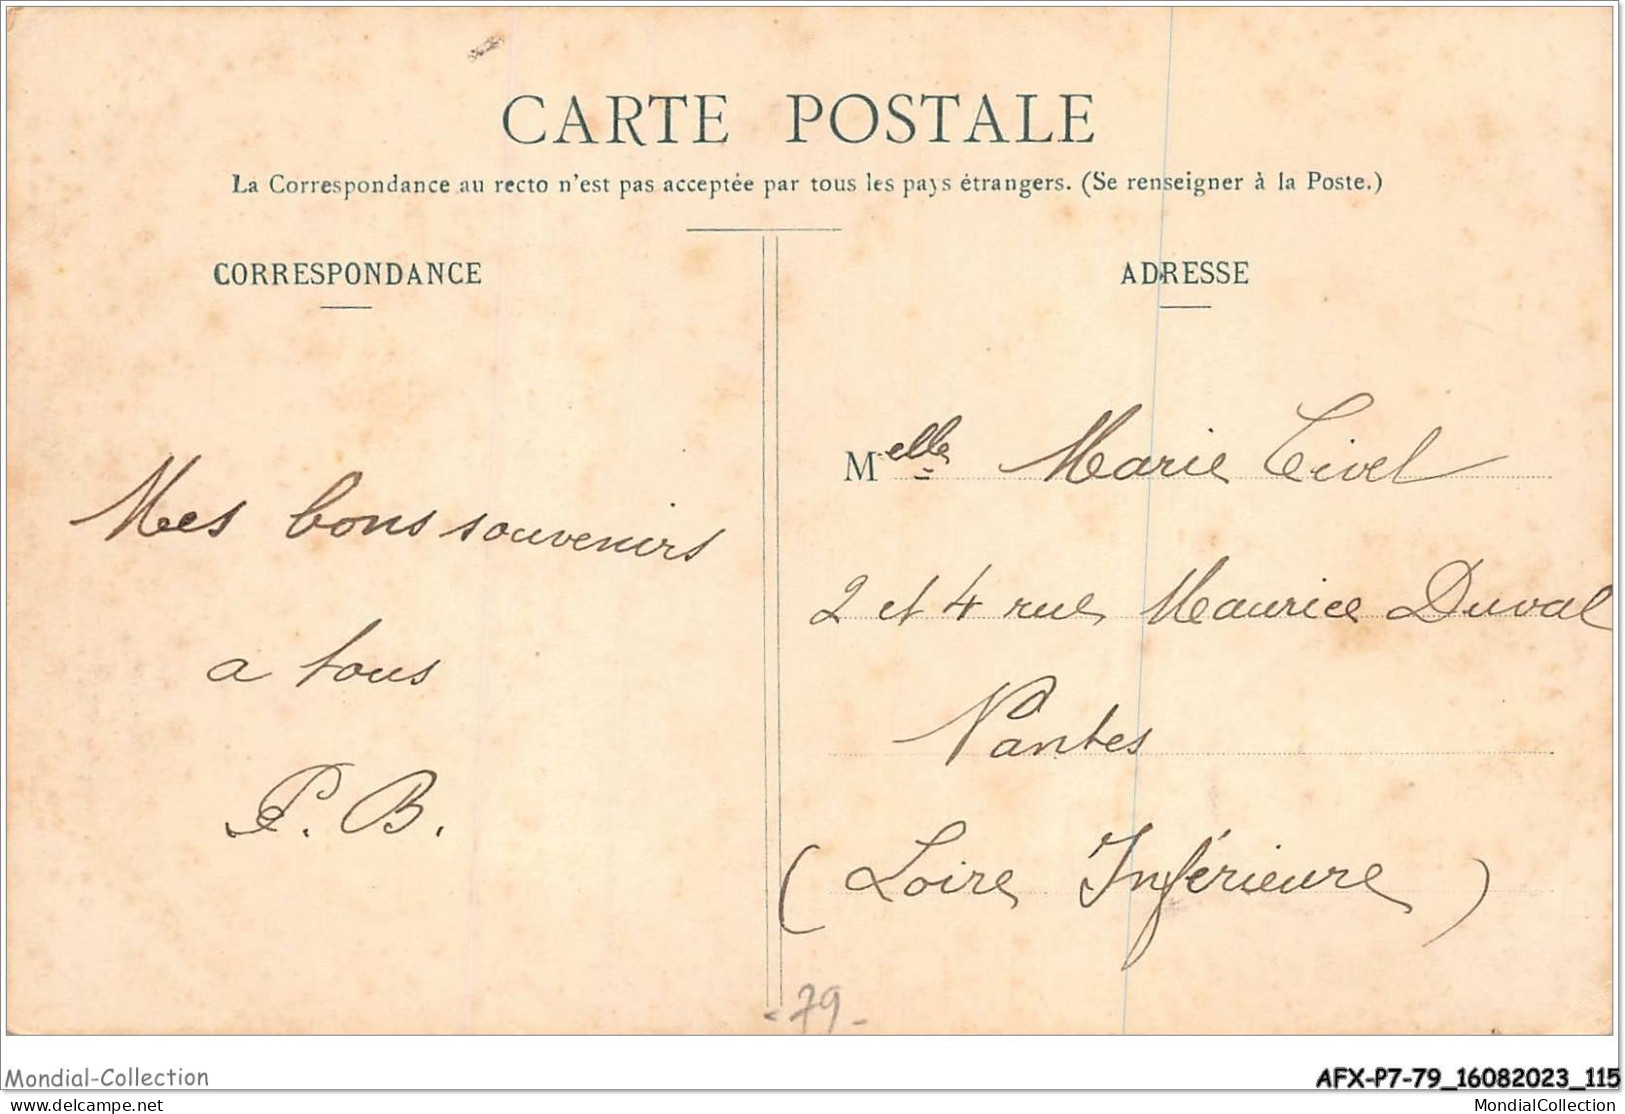 CARTE POSTALE
La Correspondance au recto n'est pas acceptée par tous les pays étrangers. (Se renseigner à la Poste.)
CORRESPONDANCE
Mes bons souvenirs
a tous
P. B.
ADRESSE
Melle Marie Civel
2 et 4 rue Maurice Duval
Nantes
(Loire Inférieure)
79
Mondial-Collection
AFX-P7-79_16082023_115
delcampe.net
MondialCollection